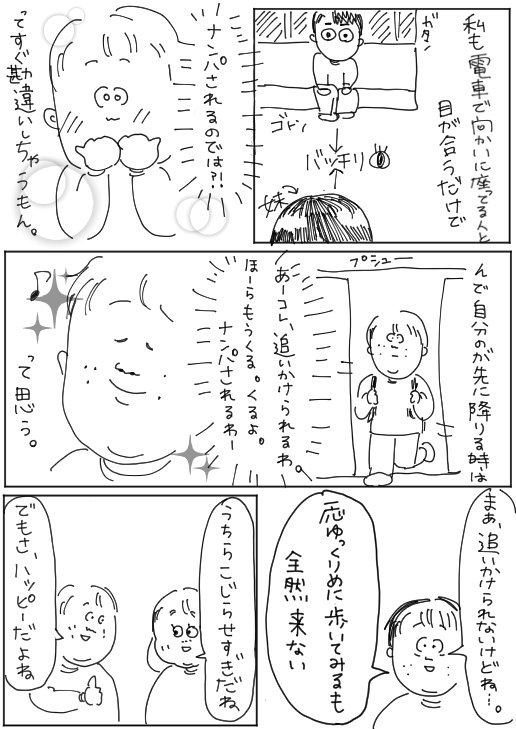 私も電車で向かいに座ってる人と
目が合うだけで
ガタン
ゴトン
バッチリ
妹
ナンパされるのでは?!!
ってすぐ勘違いしちゃうもん。
んで自分のが先に降りる時は
プシュー
あーコレ、追いかけられるわ。
ほーらもうくる。くるよ。
ナンパされるわー
って思う。
まぁ、追いかけられないけどね…。
応ゆっくりめに歩いてみるも
全然来ない
うちらこじらせすぎだね
でもさ、ハッピーだよね